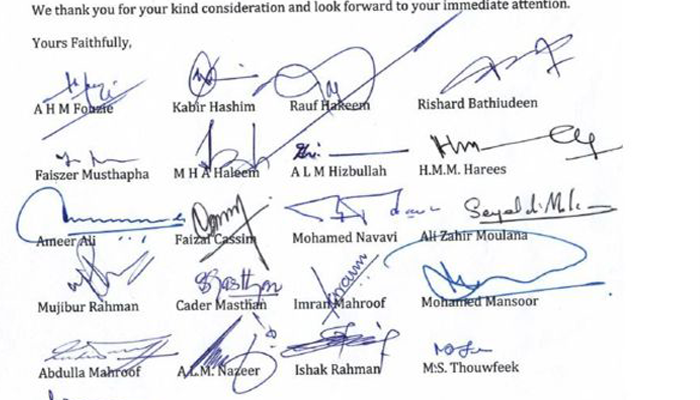 We thank you for your kind consideration and look forward to your immediate attention.
Yours Faithfully,
A H M Fouzie Kabir Hashim Rauf Hakeem Rishard Bathiudeen
Faiszer Musthapha M H A Haleem A L M Hizbullah H.M.M. Harees
Ameer Ali Faizal Cassim Mohamed Navavi Ali Zahir Moulana
Mujibur Rahman Cader Masthan Imran Mahroof Mohamed Mansoor
Abdulla Mahroof A.L.M. Nazeer Ishak Rahman M.S. Thouwfeek